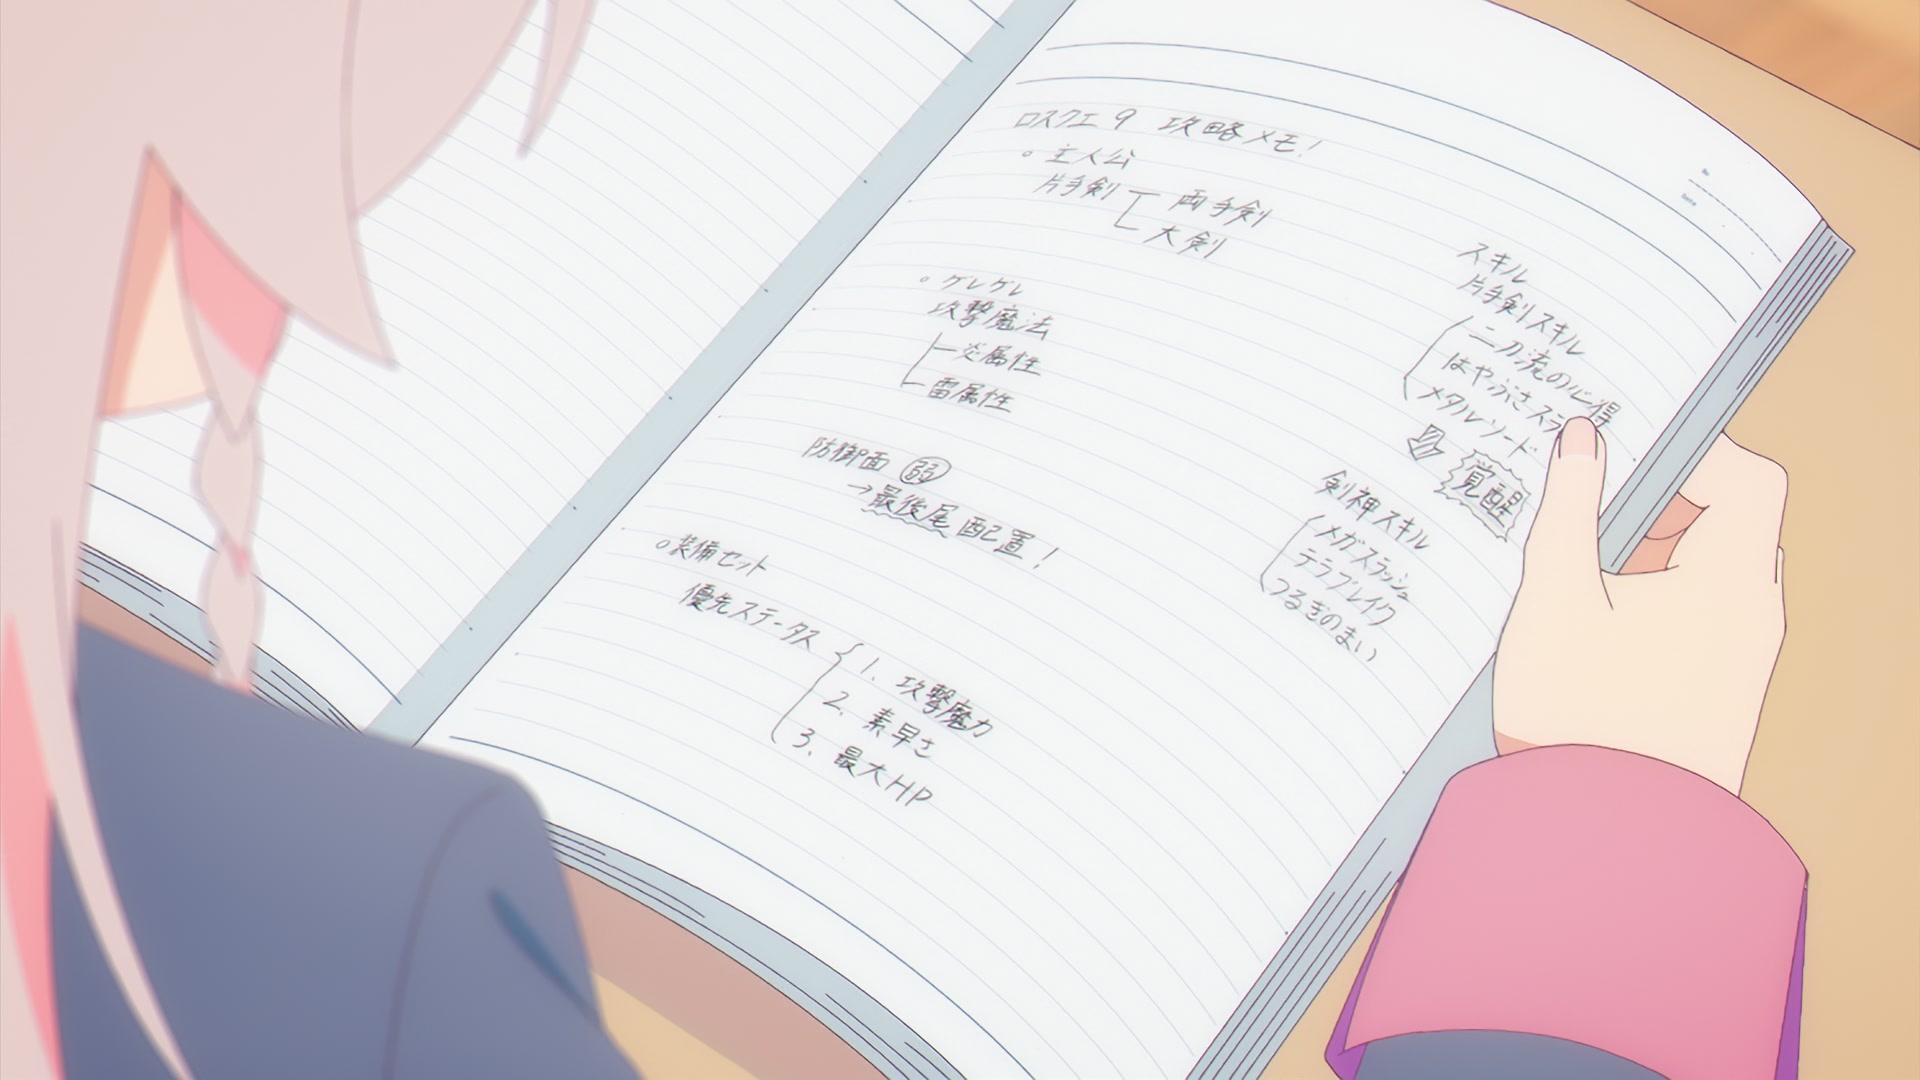 ロスクエ9 攻略メモ!
○主人公
片手剣
両手剣
大剣
○ゲレゲレ
攻撃魔法
炎属性
雷属性
防御面 弱
→最後尾配置!
○装備セット
優先ステータス
1. 攻撃魔力
2. 素早さ
3. 最大HP
スキル
片手剣スキル
二刀流の心得
はやぶさスラ
メタルソード
覚醒
剣神スキル
メガスラッシュ
テラブレイク
つるぎのまい
No.
Date